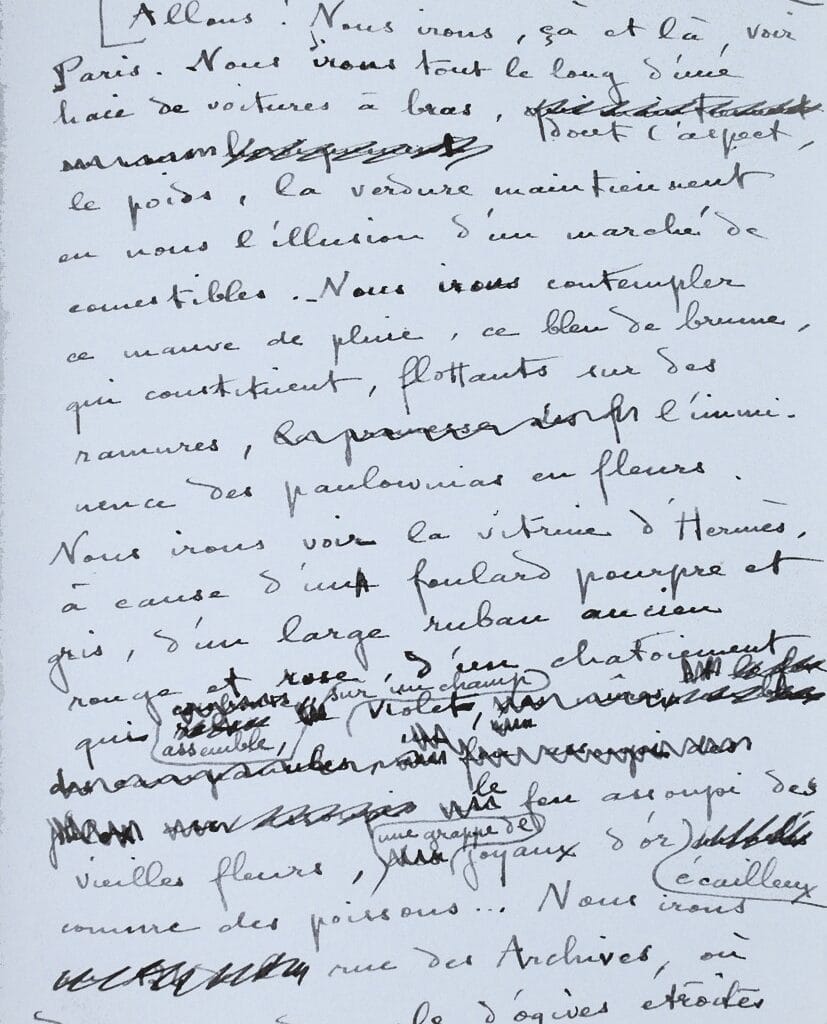 Allons ! Nous irons, çà et là, voir
Paris. Nous irons tout le long d'une
haie de voitures à bras,
dont l'aspect,
le poids, la verdure maintiennent
en nous l'illusion d'un marché de
comestibles. - Nous irons contempler
ce mauve de pluie, ce bleu de brume,
qui constituent, flottants sur des
ramures, la promesse des l'immi-
nence des paulownias en fleurs.
Nous irons voir la vitrine d'Hermès,
à cause d'un foulard pourpre et
gris, d'un large ruban ancien
rouge et rose, d'un chatoiement
sur un champ
qui violet,
assemble,
le
feu assoupi des
une grappe de
vieilles fleurs, joyaux d'or
écailleux
comme des poissons... Nous irons
rue des Archives, où
d'ogives étroites